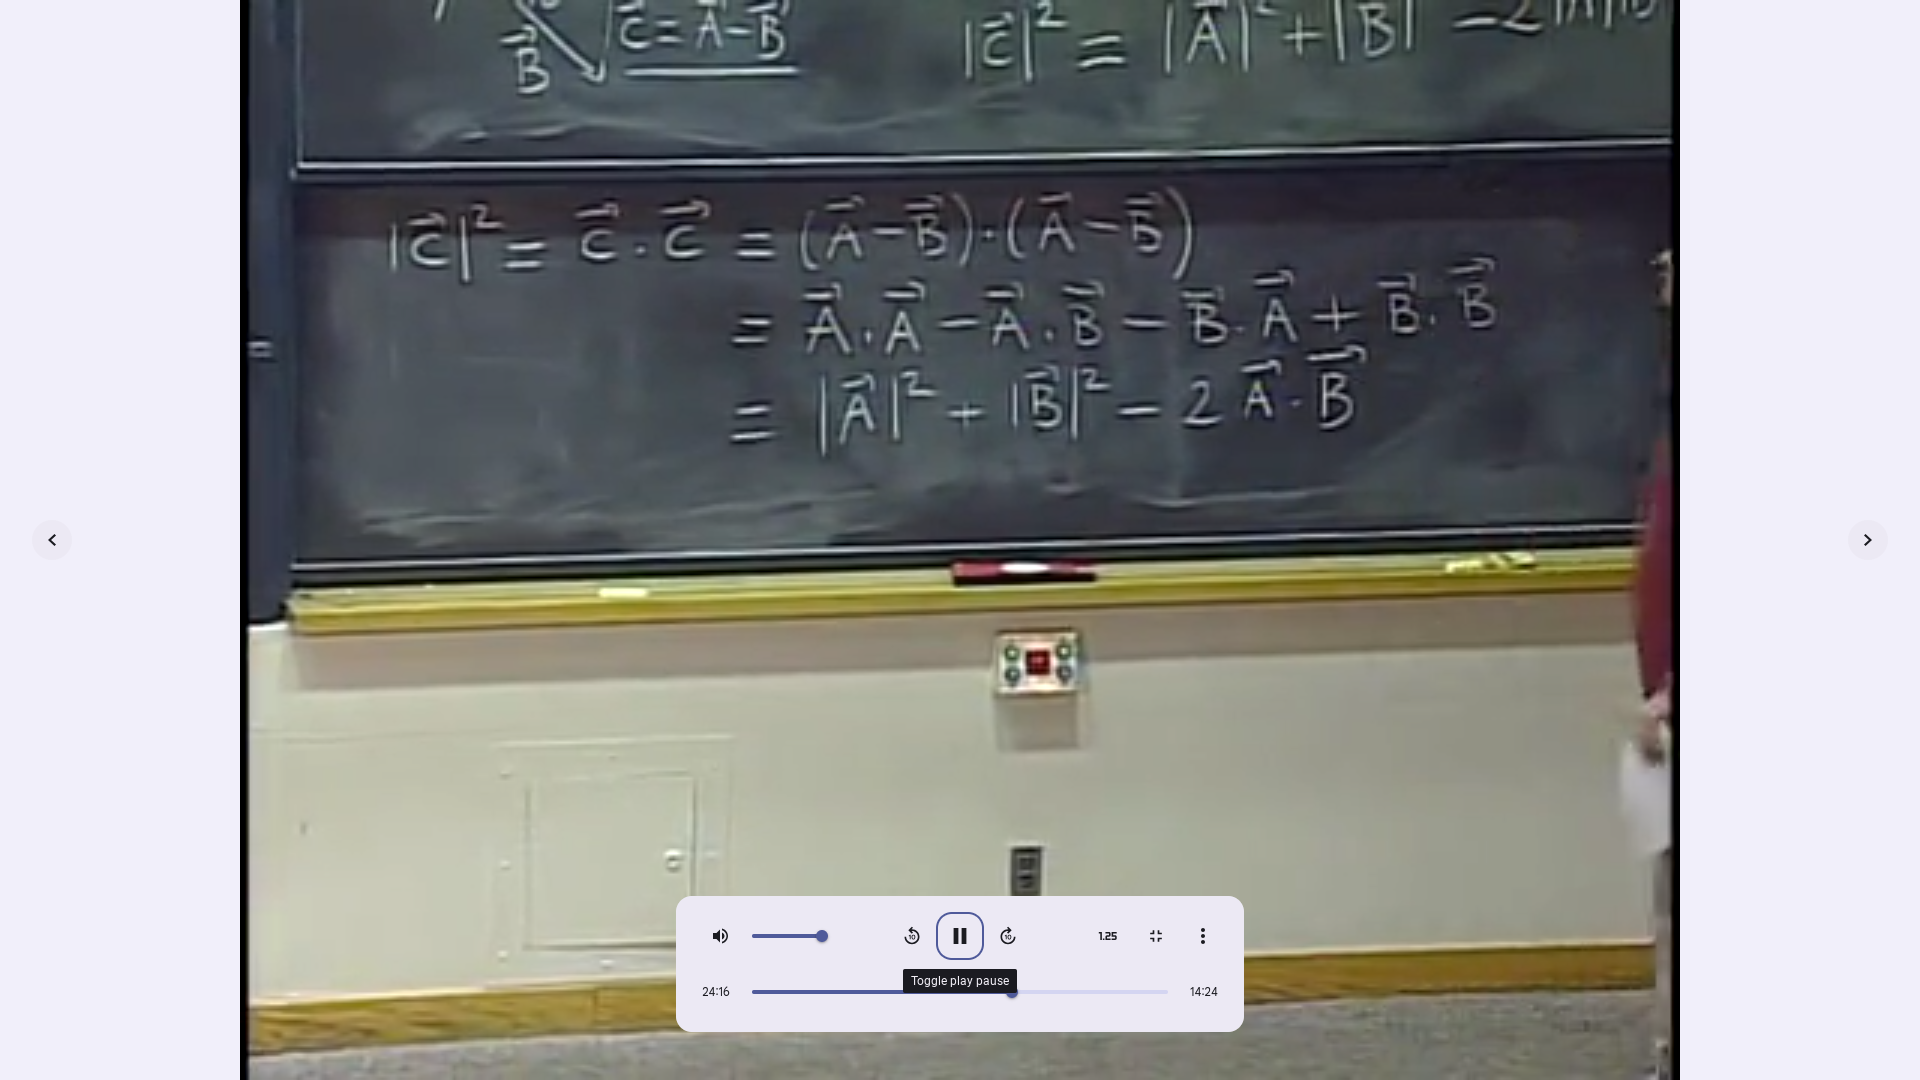 C = A - B
|C|² = |A|² + |B|² - 2|A||B
B
|C|² = C · C = (A - B) · (A - B)
= A · A - A · B - B · A + B · B
= |A|² + |B|² - 2 A · B
1.25
Toggle play pause
24:16
14:24